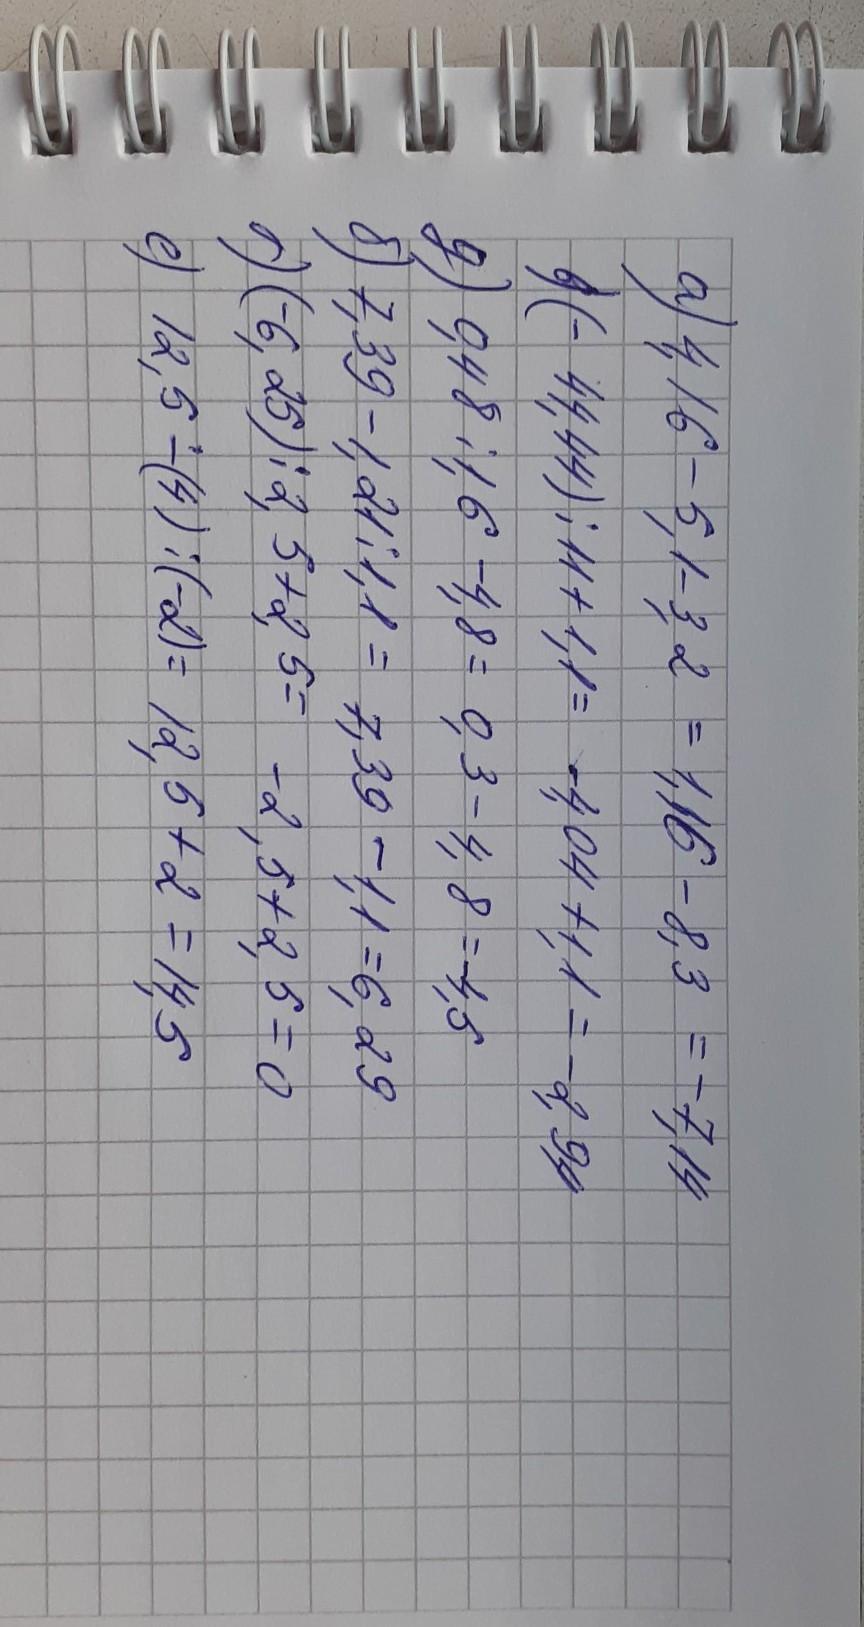 а) 1,16 - 5,1 - 3,2 = 1,16 - 8,3 = -7,14
в) (-44,44) : 11 + 1,1 = -4,04 + 1,1 = -2,94
д) 0,48 : 1,6 - 1,8 = 0,3 - 1,8 = -1,5
б) 7,39 - 1,21 : 1,1 = 7,39 - 1,1 = 6,29
г) (-6,25) : 2,5 + 2,5 = -2,5 + 2,5 = 0
е) 12,5 - (4) : (-2) = 12,5 + 2 = 14,5